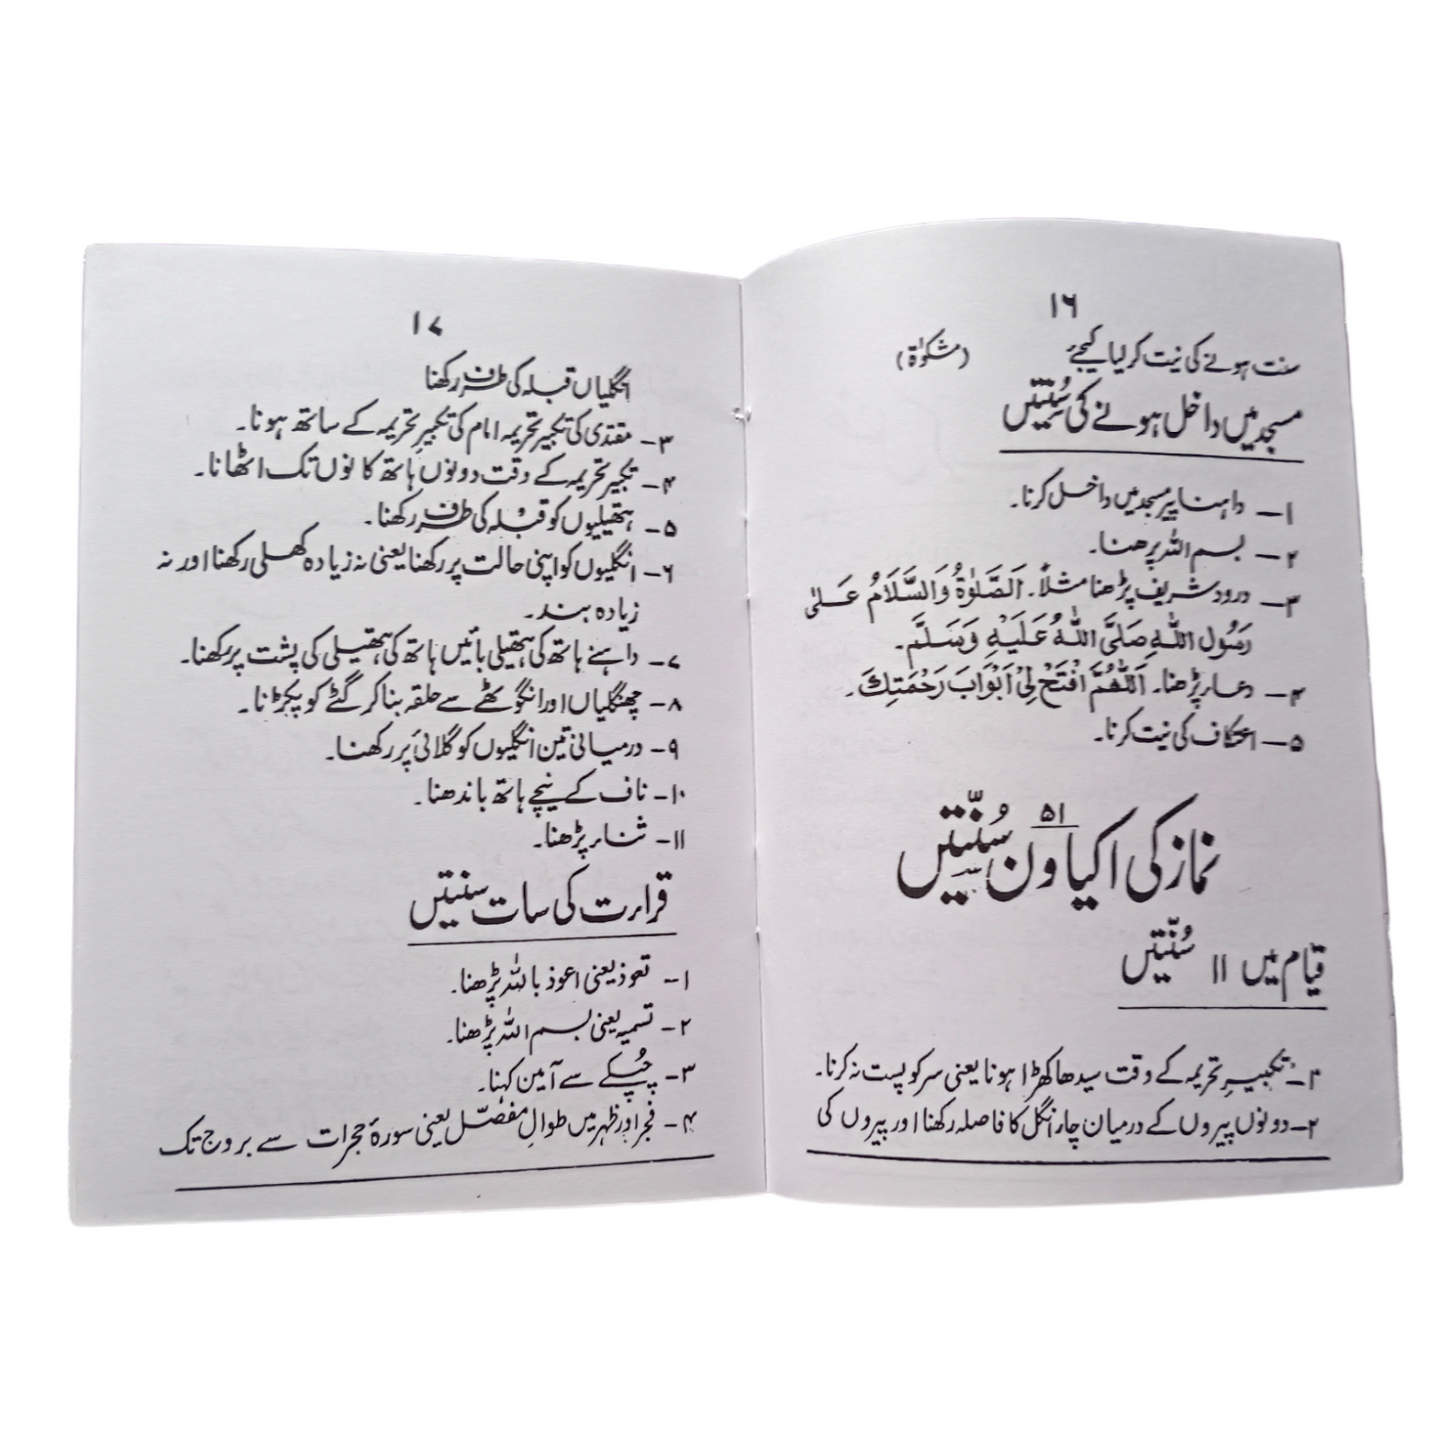 ۱۶
سنت ہونے کی نیت کر لیا کیجئے (مشکوٰۃ)
مسجد میں داخل ہونے کی سُنتیں
۱— داہنا پیر مسجد میں داخل کرنا۔
۲— بسم اللہ پڑھنا۔
۳— درود شریف پڑھنا مثلاً۔ اَلصَّلوٰۃُ وَالسَّلَامُ عَلیٰ
رَسُولِ اللہِ صَلَّی اللہُ عَلَیْہِ وَسَلَّم۔
۴— دعاء پڑھنا۔ اَللّٰھُمَّ افْتَحْ لِیْ اَبْوَابَ رَحْمَتِکَ۔
۵— اعتکاف کی نیت کرنا۔
نماز کی اکیاون ۵۱ سُنّتیں
قیام میں ۱۱ سُنّتیں
۱— تکبیرِ تحریمہ کے وقت سیدھا کھڑا ہونا یعنی سر کو پست نہ کرنا۔
۲— دونوں پیروں کے درمیان چار انگل کا فاصلہ رکھنا اور پیروں کی
۱۷
انگلیاں قبلہ کی طرف رکھنا
۳— مقتدی کی تکبیر تحریمہ امام کی تکبیرِ تحریمہ کے ساتھ ہونا۔
۴— تکبیر تحریمہ کے وقت دونوں ہاتھ کانوں تک اٹھانا۔
۵— ہتھیلیوں کو قبْلہ کی طرف رکھنا۔
۶— انگلیوں کو اپنی حالت پر رکھنا یعنی نہ زیادہ کھلی رکھنا اور نہ
زیادہ بند۔
۷— داہنے ہاتھ کی ہتھیلی بائیں ہاتھ کی ہتھیلی کی پشت پر رکھنا۔
۸— چھنگلیاں اور انگوٹھے سے حلقہ بنا کر گٹے کو پکڑنا۔
۹— درمیانی تین انگلیوں کو کلائی پر رکھنا۔
۱۰— ناف کے نیچے ہاتھ باندھنا۔
۱۱— ثناء پڑھنا۔
قراءت کی سات سنتیں
۱— تعوذ یعنی اعوذ باللہ پڑھنا۔
۲— تسمیہ یعنی بسم اللہ پڑھنا۔
۳— چُپکے سے آمین کہنا۔
۴— فجر اور ظہر میں طوالِ مفصّل یعنی سورۂ حجرات سے بروج تک